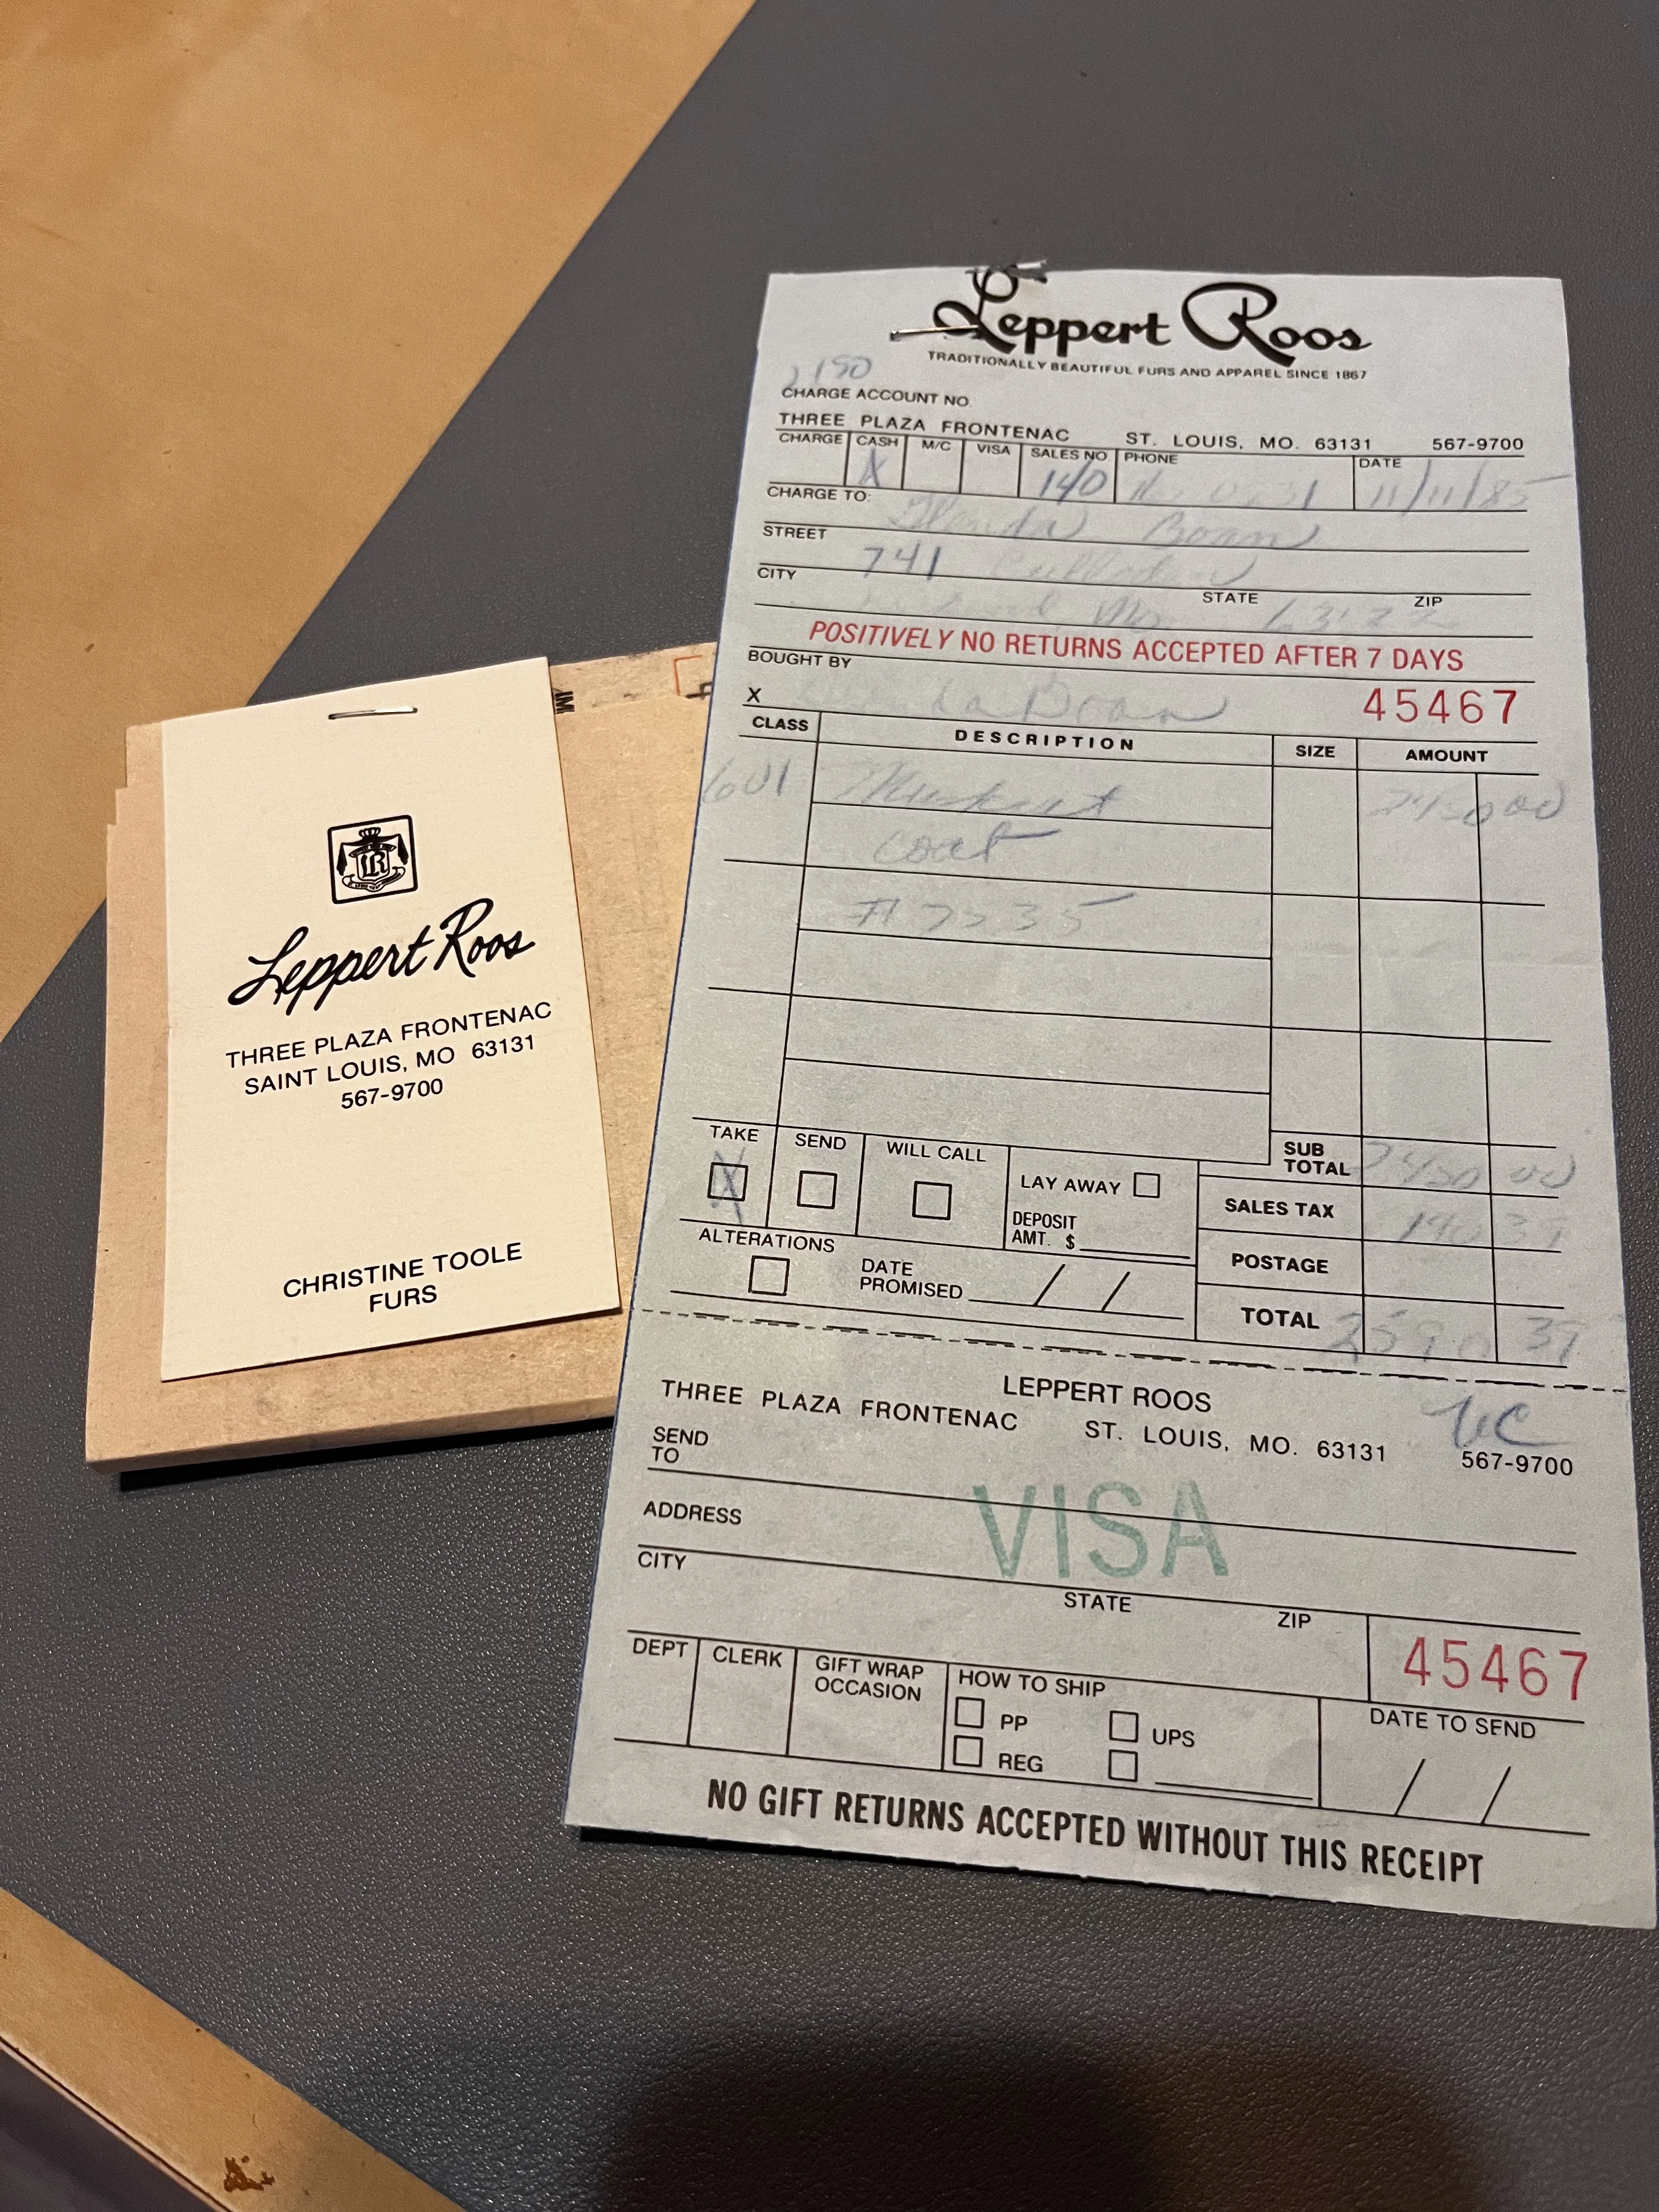 Leppert Roos
THREE PLAZA FRONTENAC
SAINT LOUIS, MO 63131
567-9700
CHRISTINE TOOLE
FURS
Leppert Roos
TRADITIONALLY BEAUTIFUL FURS AND APPAREL SINCE 1867
CHARGE ACCOUNT NO.
THREE PLAZA FRONTENAC ST. LOUIS, MO. 63131 567-9700
CHARGE CASH M/C VISA SALES NO PHONE DATE
X 140 11/11/85
CHARGE TO:
STREET
741
CITY STATE ZIP
Mo
POSITIVELY NO RETURNS ACCEPTED AFTER 7 DAYS
BOUGHT BY
X 45467
CLASS DESCRIPTION SIZE AMOUNT
601 Muskrat
coat
TAKE SEND WILL CALL LAY AWAY
X
DEPOSIT
AMT. $
SUB
TOTAL
SALES TAX
ALTERATIONS DATE
PROMISED / /
POSTAGE
TOTAL 2590 37
LEPPERT ROOS
THREE PLAZA FRONTENAC ST. LOUIS, MO. 63131 567-9700
SEND
TO
VISA
ADDRESS
CITY STATE ZIP
45467
DEPT CLERK GIFT WRAP
OCCASION
HOW TO SHIP
PP UPS
REG
DATE TO SEND
/ /
NO GIFT RETURNS ACCEPTED WITHOUT THIS RECEIPT